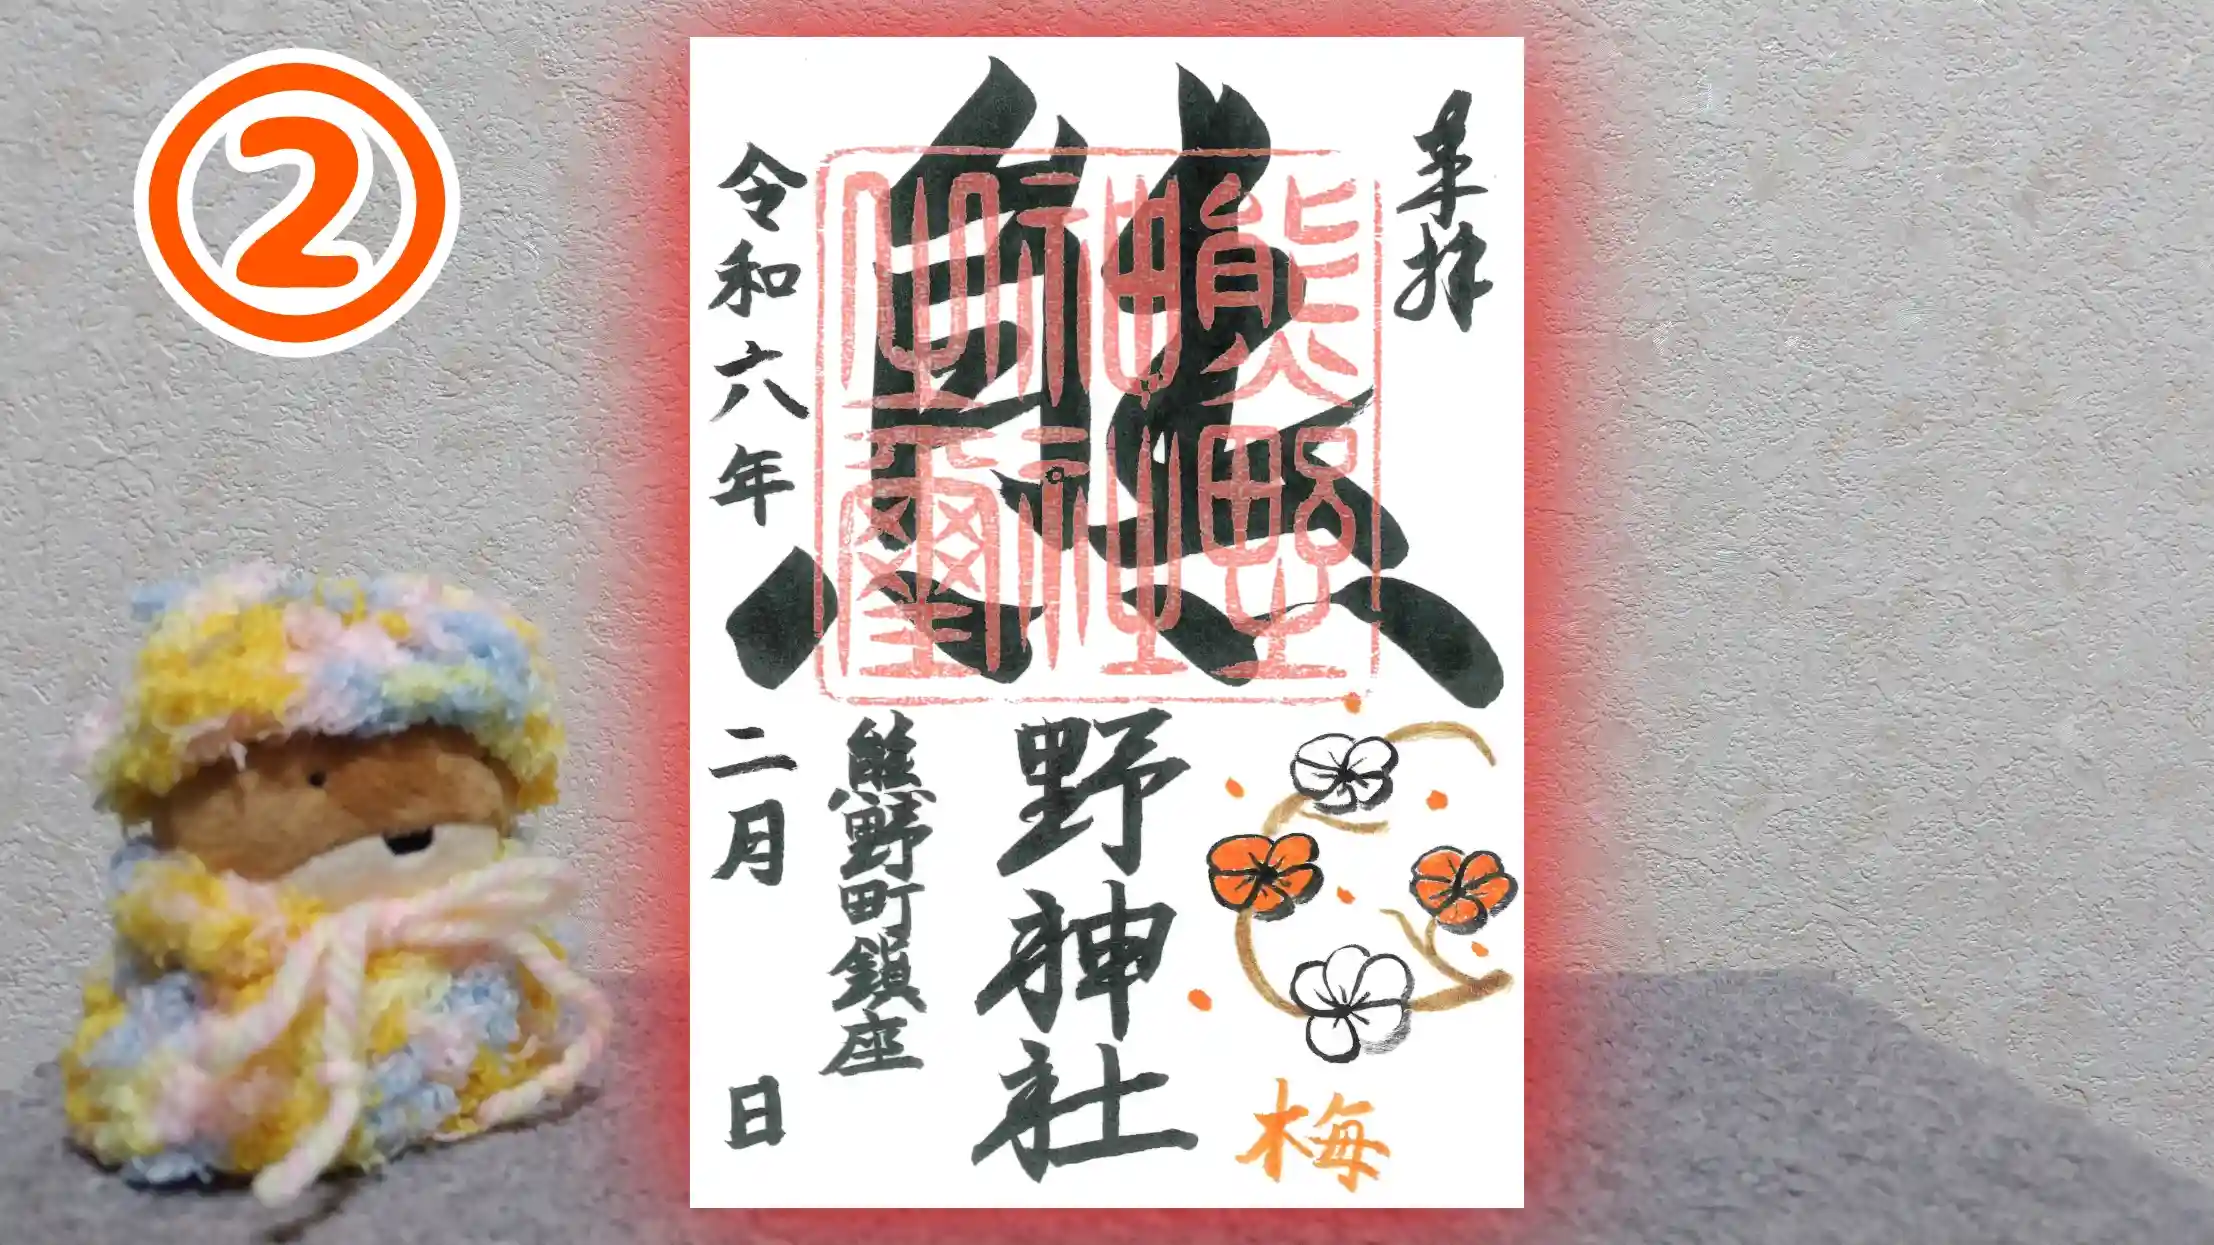 ②
奉拝
熊野神社
熊野神社之璽
梅
熊野町鎮座
令和六年二月 日